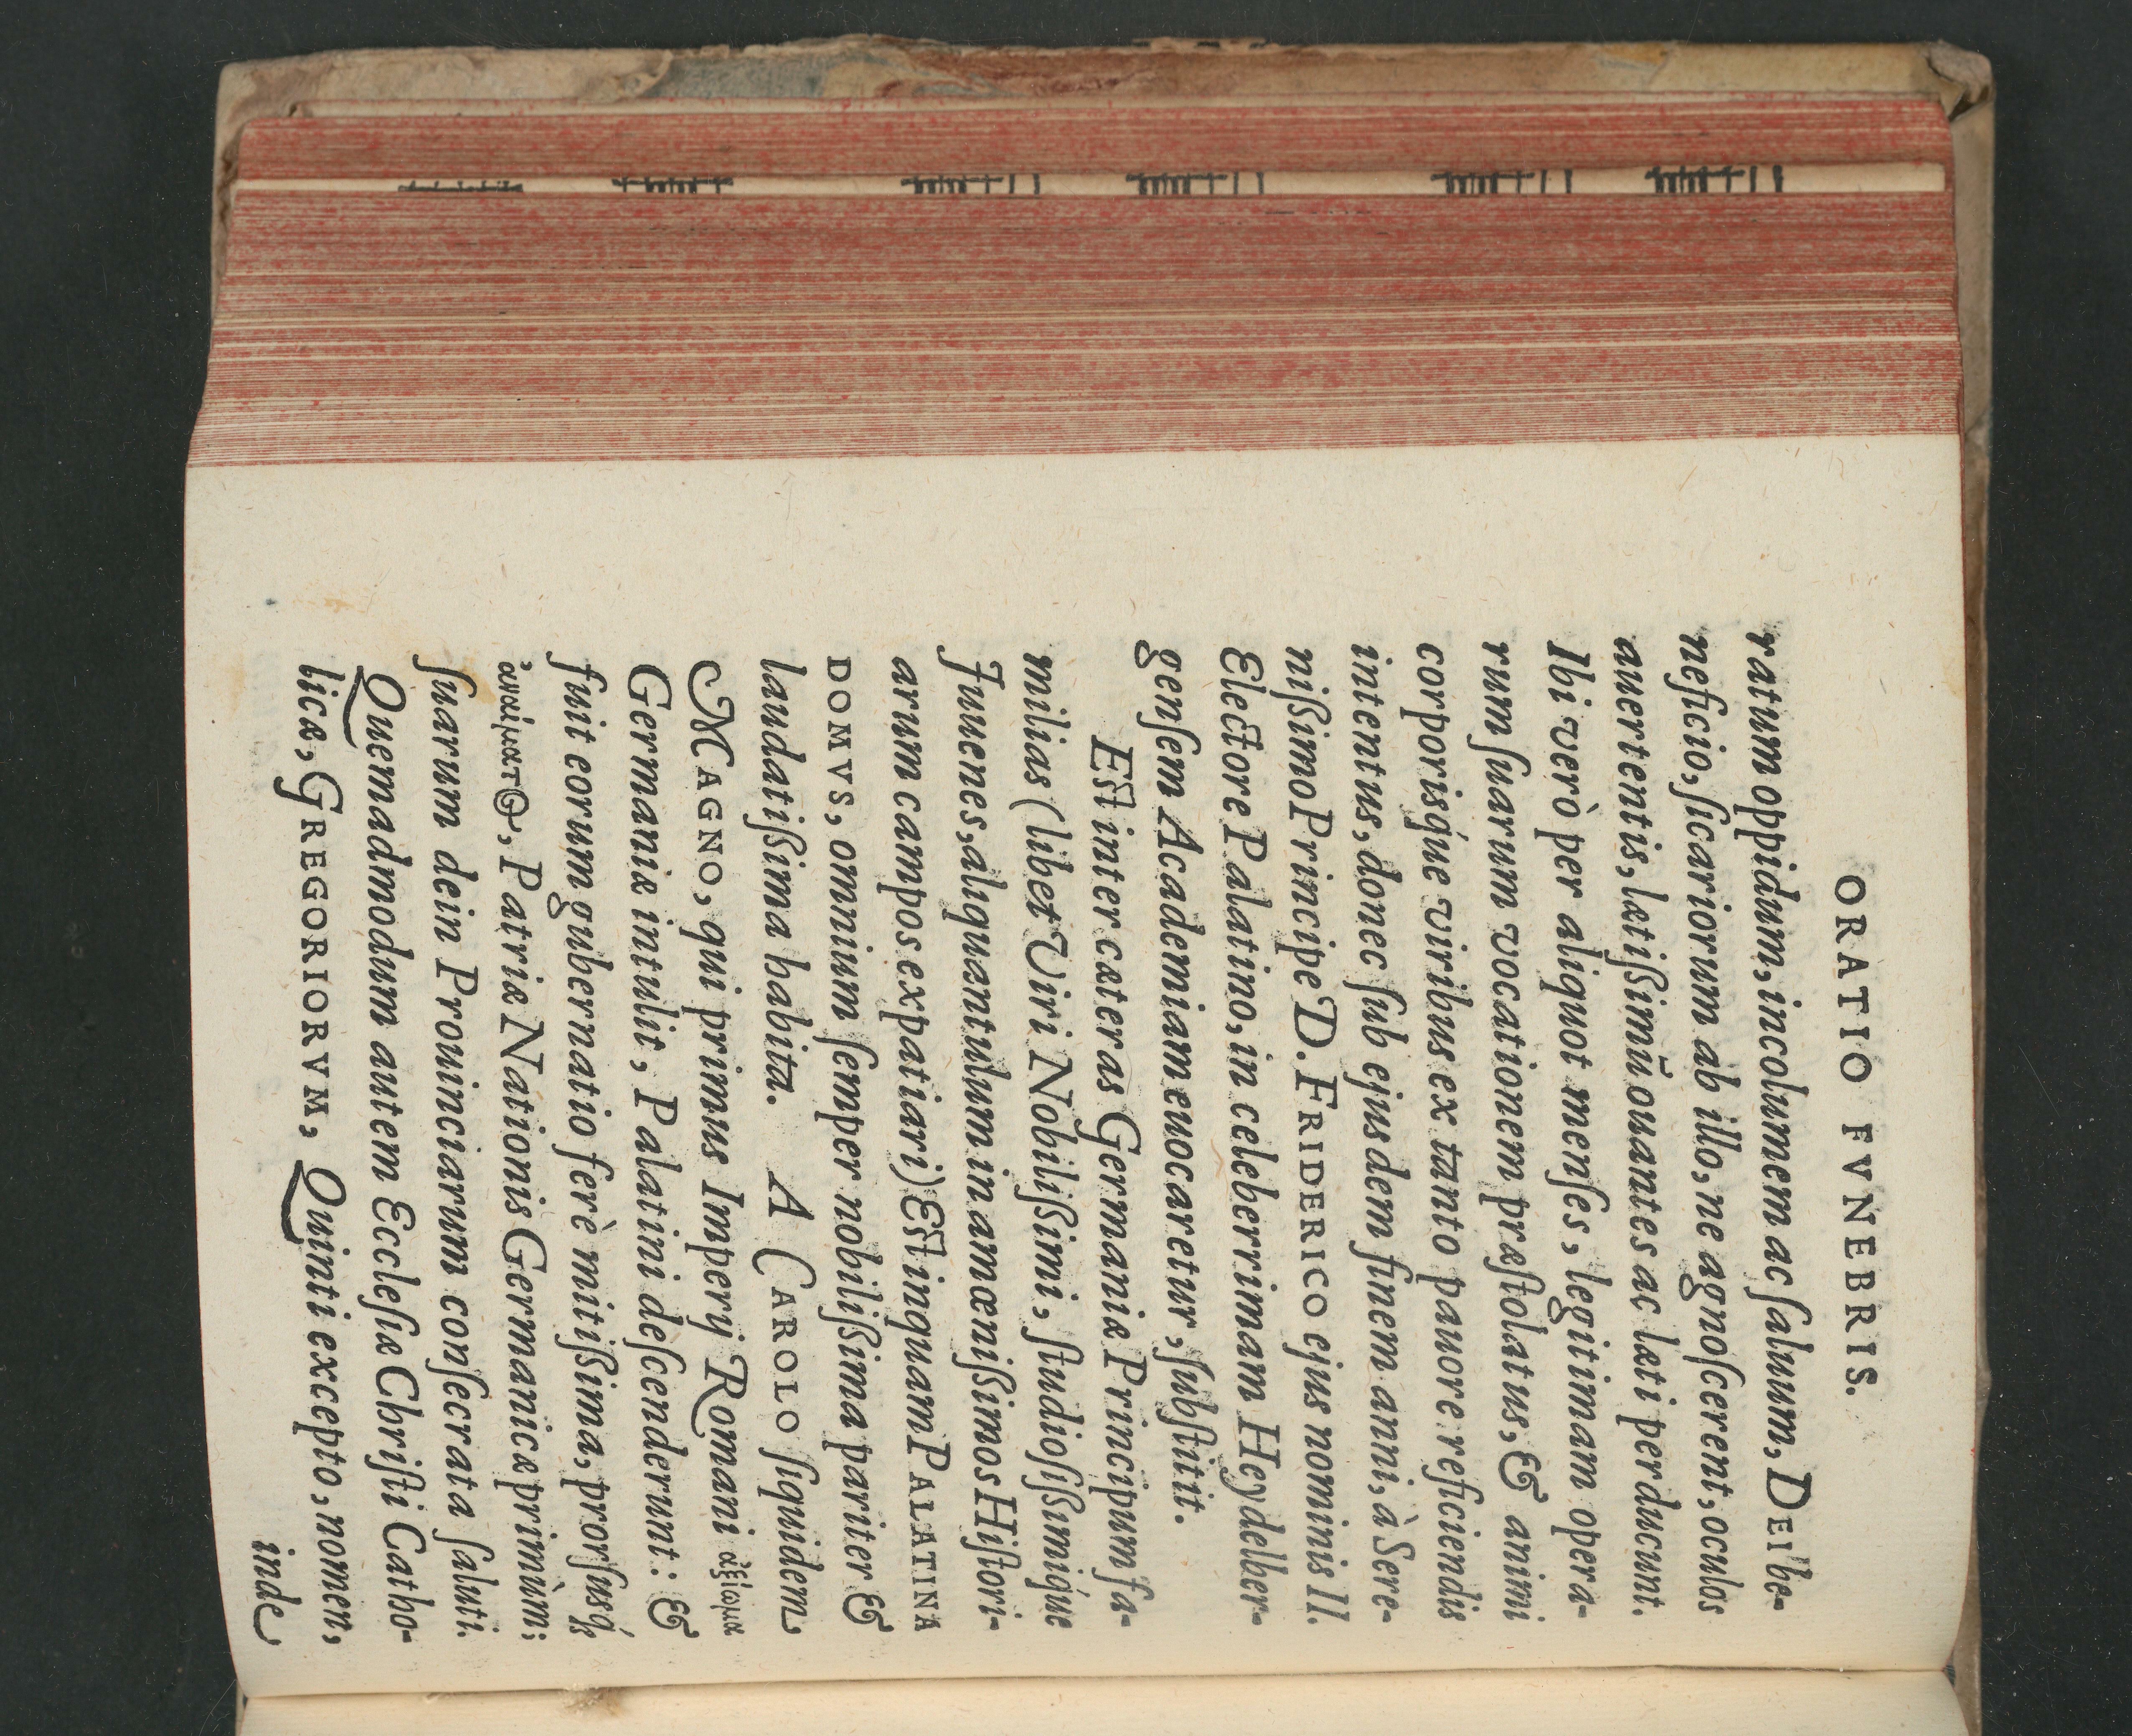 ORATIO FVNEBRIS.
ratum oppidum, incolumem ac ſaluum, DEI be-
neficio, ſicariorum ab illo, ne agnoſcerent, oculos
auertentis, lætiſsimũ ouantes ac læti perducunt.
Ibi verò per aliquot menſes, legitimam opera-
rum ſuarum vocationem præſtolatus, & animi
corporisq́ue viribus ex tanto pauore reficiendis
intentus, donec ſub ejusdem finem anni, à Sere-
niſsimo Principe D. FRIDERICO ejus nominis II.
Electore Palatino, in celeberrimam Heydelber-
genſem Academiam euocaretur, ſubſtitit.
Est inter cæteras Germaniæ Principum fa-
milias (libet Viri Nobiliſsimi, ſtudioſiſsimiq́ue
Juuenes, aliquantulum in amœniſsimos Hiſtori-
arum campos expatiari) Est inquam PALATINA
DOMVS, omnium ſemper nobiliſsima pariter &
laudatiſsima habita. A CAROLO ſiquidem
MAGNO, qui primus Imperij Romani ἀξίωμα
Germaniæ intulit, Palatini deſcenderunt: &
fuit eorum gubernatio ferè mitiſsima, prorſusq́;
, Patriæ Nationis Germanicæ primùm:
ſuarum dein Prouinciarum conſecrata ſaluti.
Quemadmodum autem Eccleſiæ Chriſti Catho-
licæ, GREGORIORVM, Quinti excepto, nomen,
inde